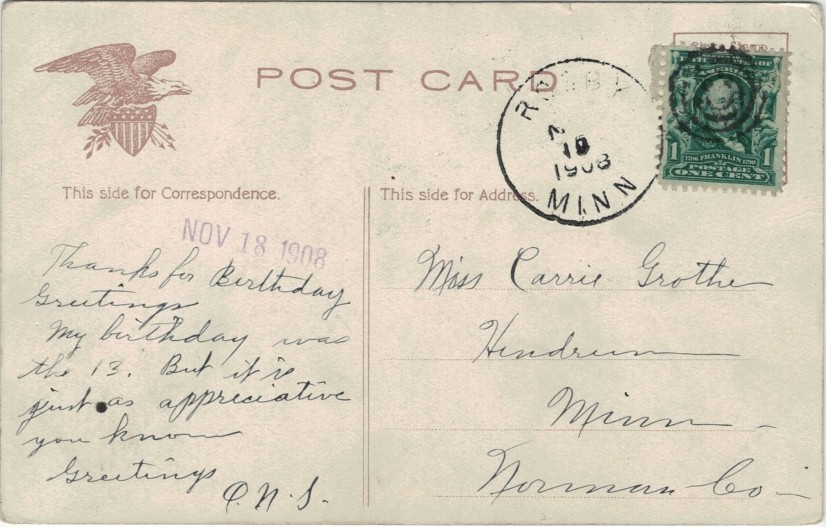 POST CARD
MINN
1908
1706 FRANKLIN 1790
1 1
POSTAGE
ONE CENT
This side for Correspondence.
This side for Address.
NOV 18 1908
Thanks for Birthday
Greetings
My birthday was
the 13. But it is
just as appreciative
you know
Greetings
Miss Carrie Grothe
Hendrum
Minn -
Norman Co -